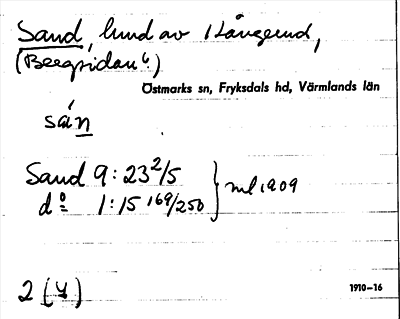 Sand, hmd av 1 Långerud,
(Bergsidan?)
Östmarks sn, Fryksdals hd, Värmlands län
sán
Sand 9:23 2/5
do 1:15 169/250 } ml 1909
2 (4)
1910-16